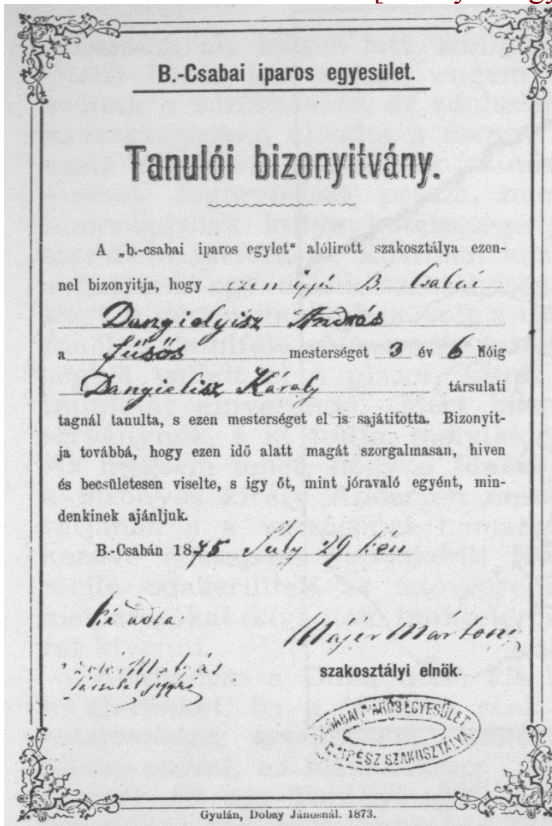 B.-Csabai iparos egyesület.
Tanulói bizonyitvány.
A „b.-csabai iparos egylet“ alólirott szakosztálya ezen-
nel bizonyitja, hogy ezen ifjú B. Csabai
Dangielyisz András
a Fűsős mesterséget 3 év 6 Hóig
Dangielisz Károly társulati
tagnál tanulta, s ezen mesterséget el is sajátitotta. Bizonyit-
ja továbbá, hogy ezen idő alatt magát szorgalmasan, hiven
és becsületesen viselte, s igy őt, mint jóravaló egyént, min-
denkinek ajánljuk.
B.-Csabán 1875 July 29 kén
Kiadta
Majer Marton
szakosztályi elnök.
CSABAI IPAROS EGYESÜLET
SZAKOSZTÁLYA
Gyulán, Dobay Jánosnál. 1873.